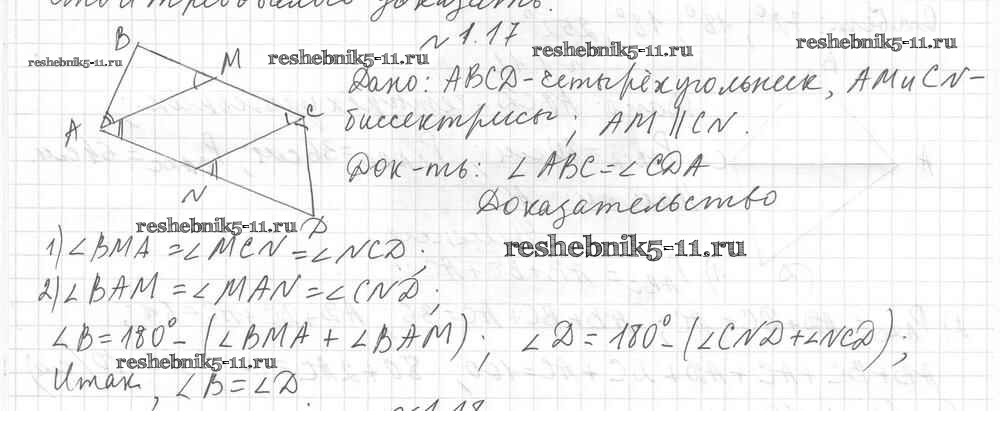 что и требовалось доказать.
№ 1.17
Дано: ABCD-четырёхугольник, AM и CN-
биссектрисы; AM || CN.
Док-ть: ∠ABC=∠CDA
Доказательство
B
M
C
A
N
D
1) ∠BMA = ∠MCN = ∠NCD;
2) ∠BAM = ∠MAN = ∠CND;
∠B = 180° - (∠BMA + ∠BAM); ∠D = 180° - (∠CND + ∠NCD);
Итак, ∠B = ∠D.
№ 1.18
reshebnik5-11.ru
reshebnik5-11.ru
reshebnik5-11.ru
reshebnik5-11.ru
reshebnik5-11.ru
reshebnik5-11.ru
reshebnik5-11.ru